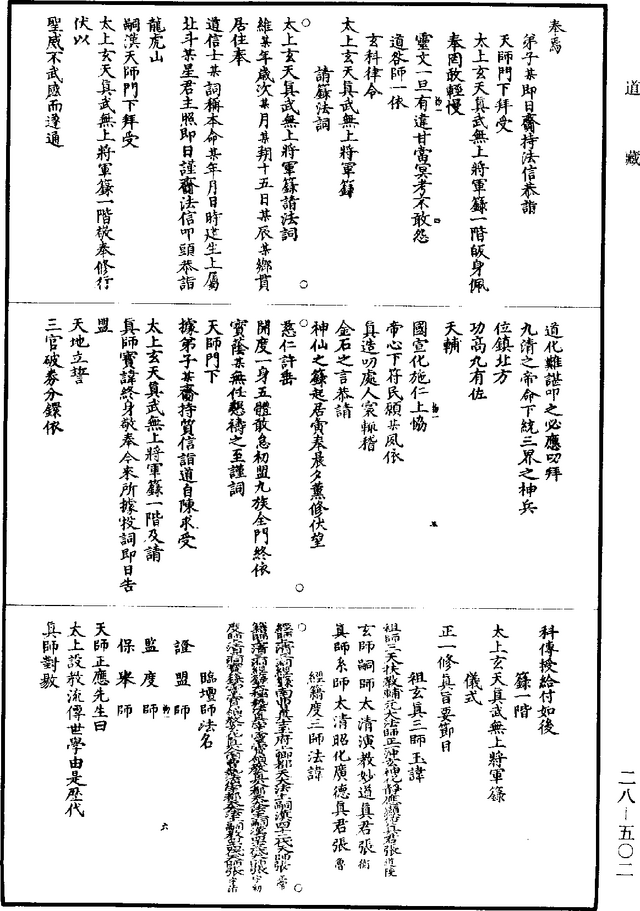 道藏
奉焉
弟子某即日齎持法信恭詣
天師門下拜受
太上玄天真武無上將軍籙一階皈身佩
奉罔敢輕慢
靈文一旦有違甘當冥考不敢怨
道咎師一依
玄科律令
太上玄天真武無上將軍籙
請籙法詞
太上玄天真武無上將軍籙請法詞
維某年歲次某月某朔十五日某辰某鄉貫
居住奉
道信士某詞稱本命某年月日時建生上屬
北斗某星君主照即日謹齎法信叩頭恭詣
龍虎山
嗣漢天師門下拜受
太上玄天真武無上將軍籙一階佩奉修行
伏以
聖威不武感而遂通
道化難諶叩之必應叨拜
九清之帝命下統三界之神兵
位鎮北方
功高九有佐
天輔
國宣化施仁上協
帝心下符民願某夙依
真造叨處人寰輒稽
金石之言恭請
神仙之籙起居寅奉晨夕薰修伏望
慈仁許垂
開度一身五體敢怠初盟九族全門終依
寶蔭某無任懇禱之至謹詞
天師門下
據弟子某齎持質信詣道自陳求受
太上玄天真武無上將軍籙一階及請
真師寶諱終身敬奉今來所據投詞即日告
盟
天地立誓
三官破券分鐶依
科傳授給付如後
籙一階
太上玄天真武無上將軍籙
儀式
正一修真旨要節目
祖玄真三師玉諱
祖師三天扶教輔元大法師正一沖玄神化靜應顯佑真君張道陵
玄師嗣師太清演教妙道真君張衡
真師系師太清昭化廣德真君張魯
經籍度三師法諱
臨壇師法名
證盟師
監度師
保舉師
天師正應先生曰
太上設教流傳世學由是歷代
真師對敭
二八—五〇二